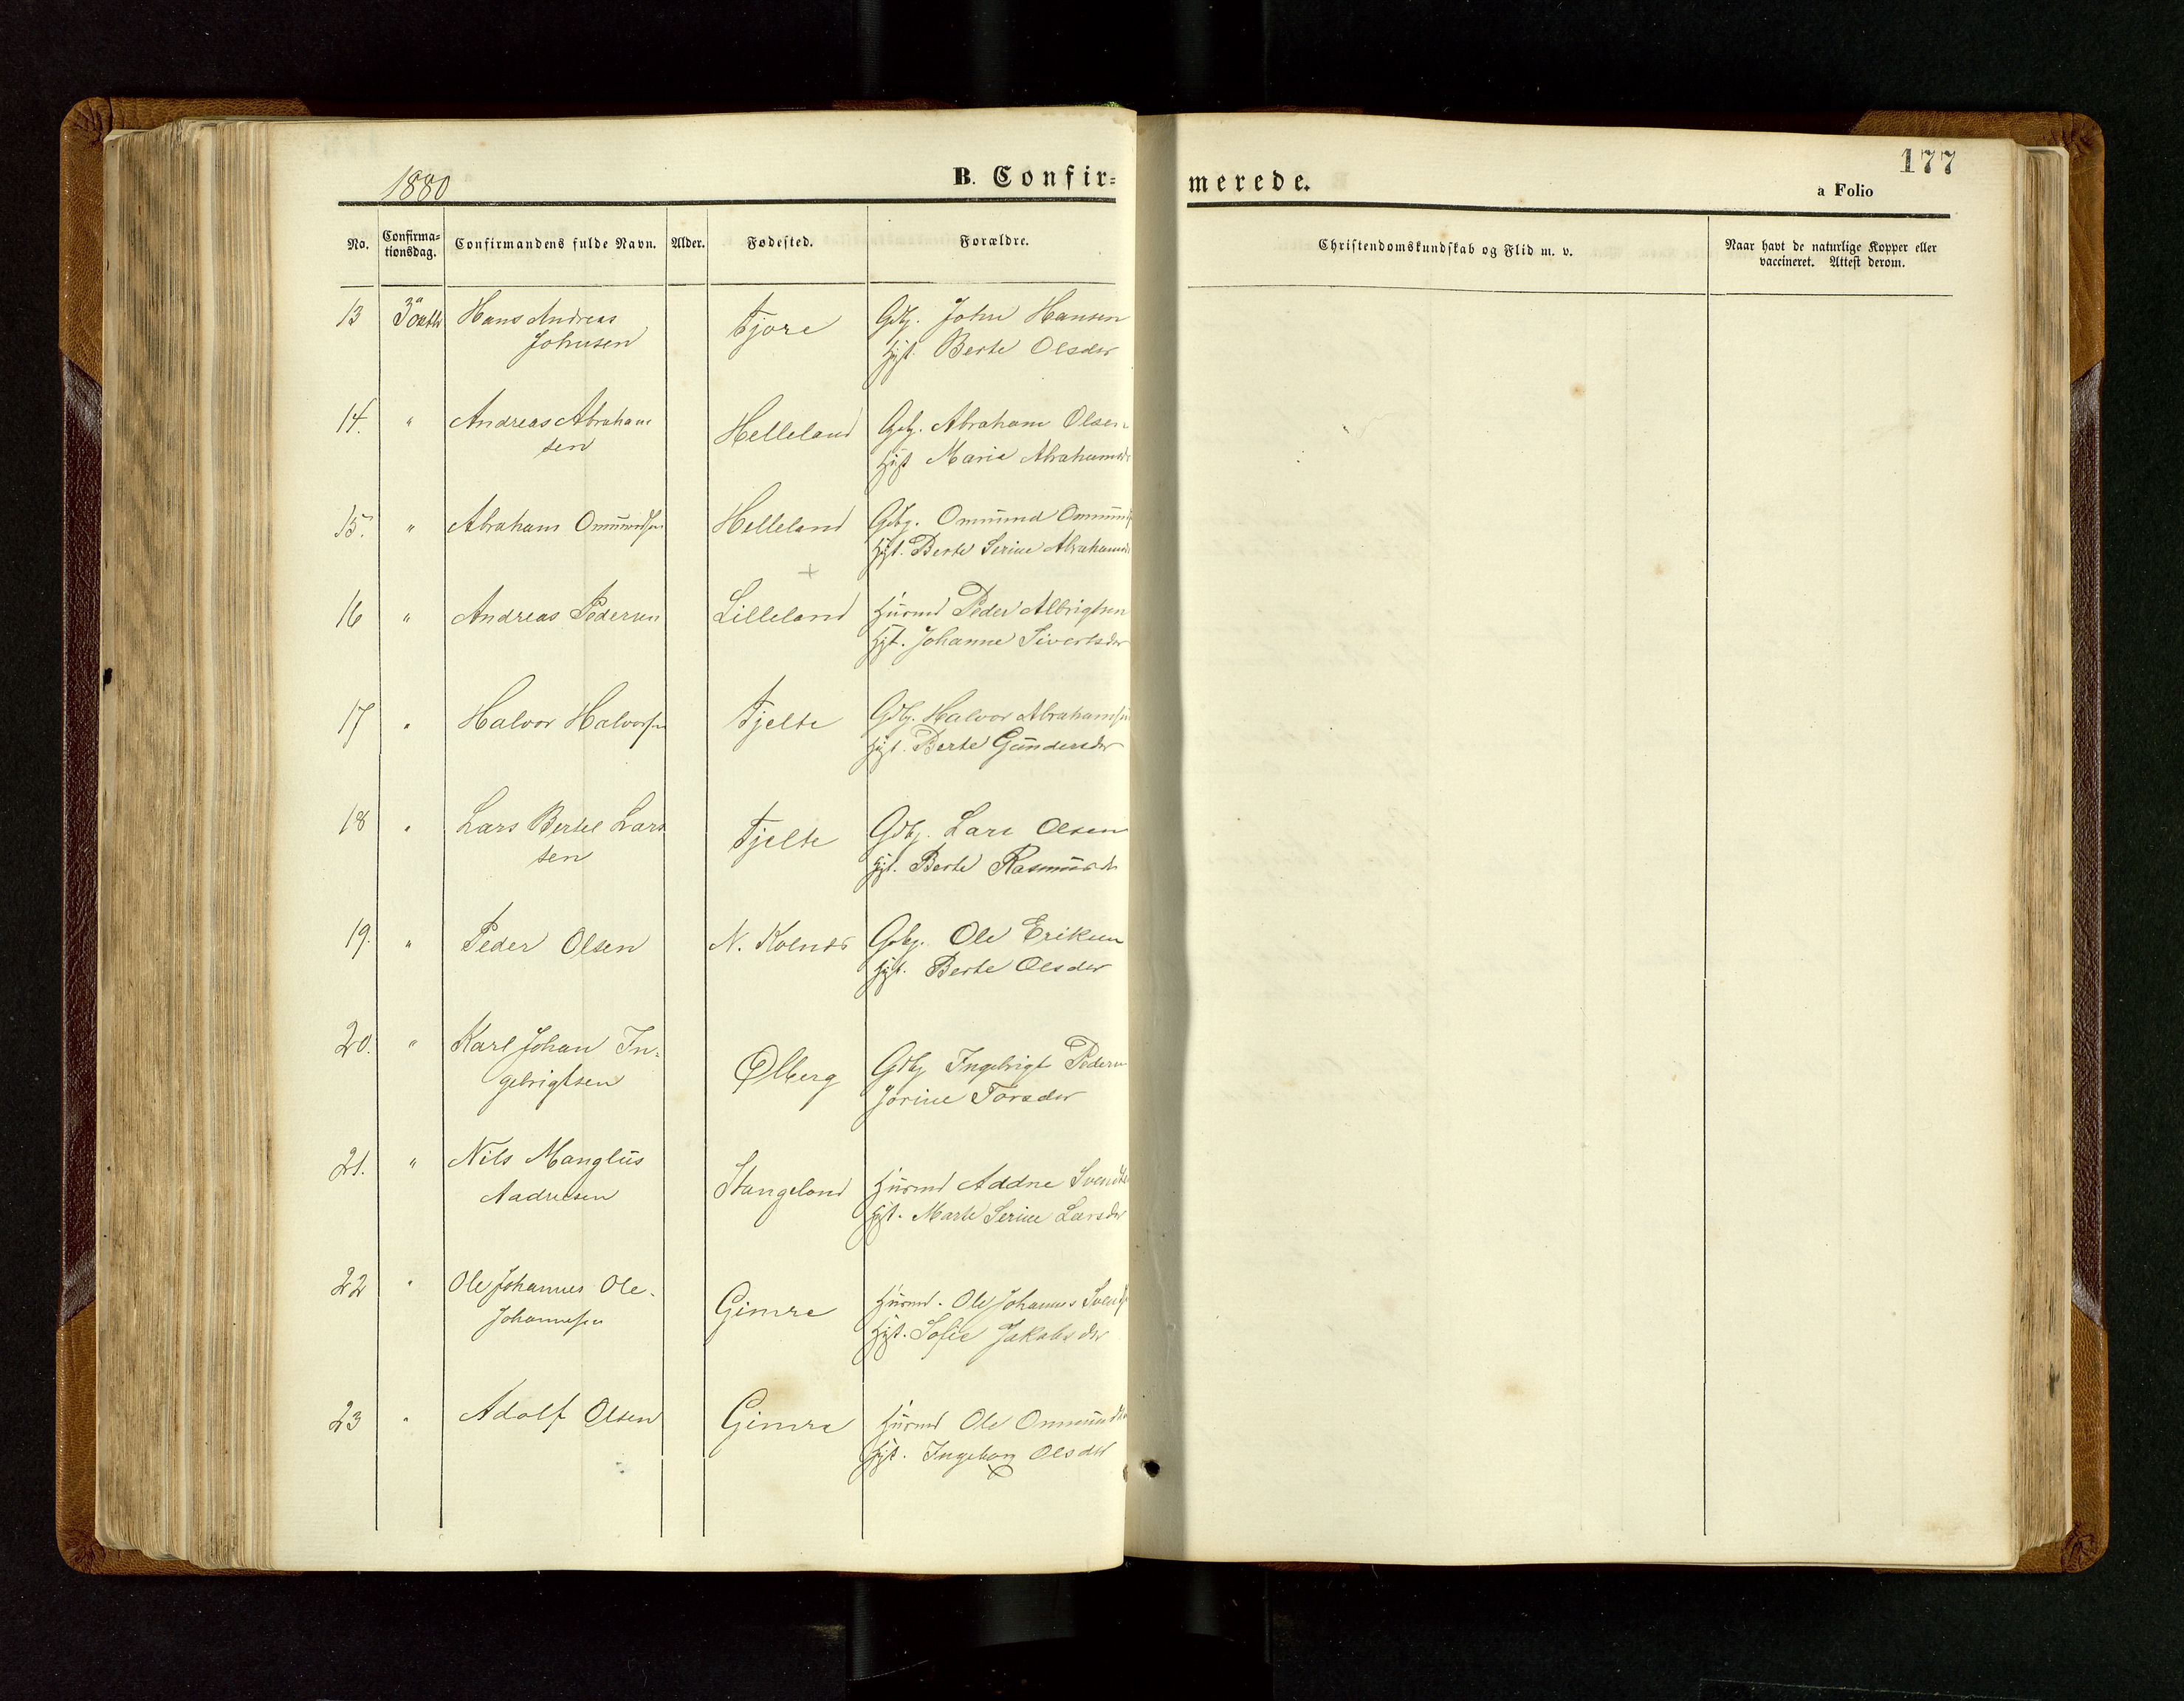 1880
B. Confir=
merede.
177
a Folio
No.
Confirma=
tionsdag.
Confirmandens fulde Navn.
Alder.
Fødested.
Forældre.
Christendomskundskab og Flid m. v.
Naar havt de naturlige Kopper eller
vaccineret. Attest derom.
13 3 Hans Andreas Tjore Gdbg. John Hansen
Johnsen Hgst. Berte Olsdtr
14. " Andreas Abraham Helleland Gdbg. Abraham Olsen
sen Hgst Marie Abrahamsdr
15. " Abraham Ommundsen Helleland Gdbg. Ommund Ommunds
Hgst. Berte Serine Abrahamsdr
+
16 " Andreas Pedersen Lilleland Husmd Peder Albrigtsen
Hgst. Johanne Sivertsdtr
17 " Halvor Halvorsen Tjelte Gdbg. Halvor Abrahamsen
Hgst. Berte Gundersdtr
18 " Lars Bertel Lars Tjelte Gdbg. Lars Olsen
sen Hgst. Berte Rasmusdtr
19. " Peder Olsen N. Kolnes Gdbg. Ole Eriksen
Hgst. Berte Olsdtr
20. " Karl Johan In- Ølberg Gdbg Ingebrigt Pedersen
gebrigtsen Jorine Torsdtr
21. " Nils Manglus Stangeland Husmd Addne Svendsen
Aadnesen Hgst. Marte Serine Larsdtr
22 " Ole Johannes Ole- Gimre Husmd. Ole Johannes Svends
Johannesen Hgst. Sofie Jakobsdtr
23 " Adolf Olsen Gimre Husmd Ole Ommundsen
Hgst. Ingeborg Olsdtr